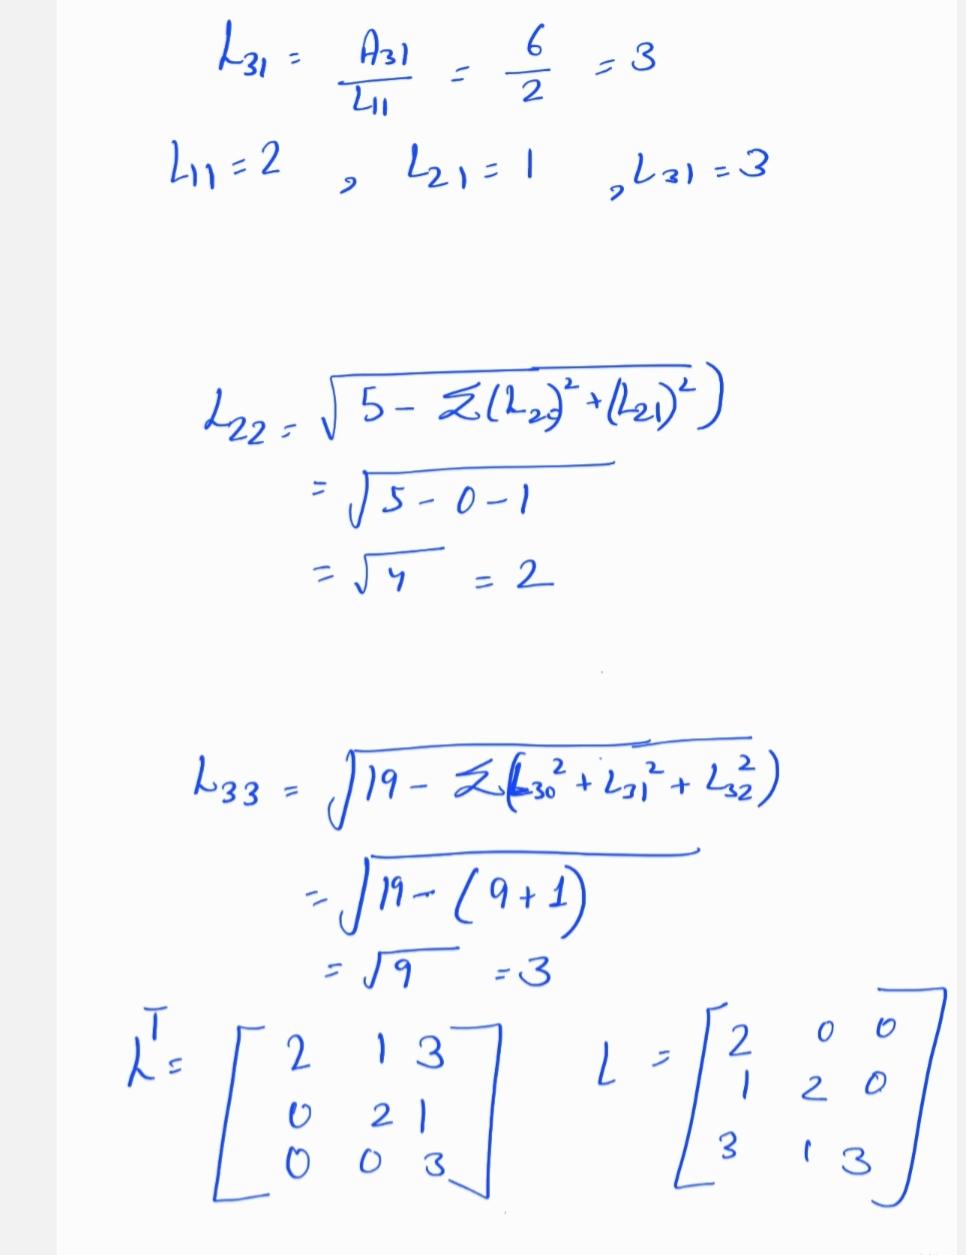 L₃₁ = A₃₁/L₁₁ = 6/2 = 3
L₁₁ = 2 , L₂₁ = 1 , L₃₁ = 3
L₂₂ = √5 - Σ(L₂₀)² + (L₂₁)²)
= √5 - 0 - 1
= √4 = 2
L₃₃ = √19 - Σ(L₃₀² + L₃₁² + L₃₂²)
= √19 - (9 + 1)
= √9 = 3
Lᵀ = [2 1 3
0 2 1
0 0 3]
L = [2 0 0
1 2 0
3 1 3]